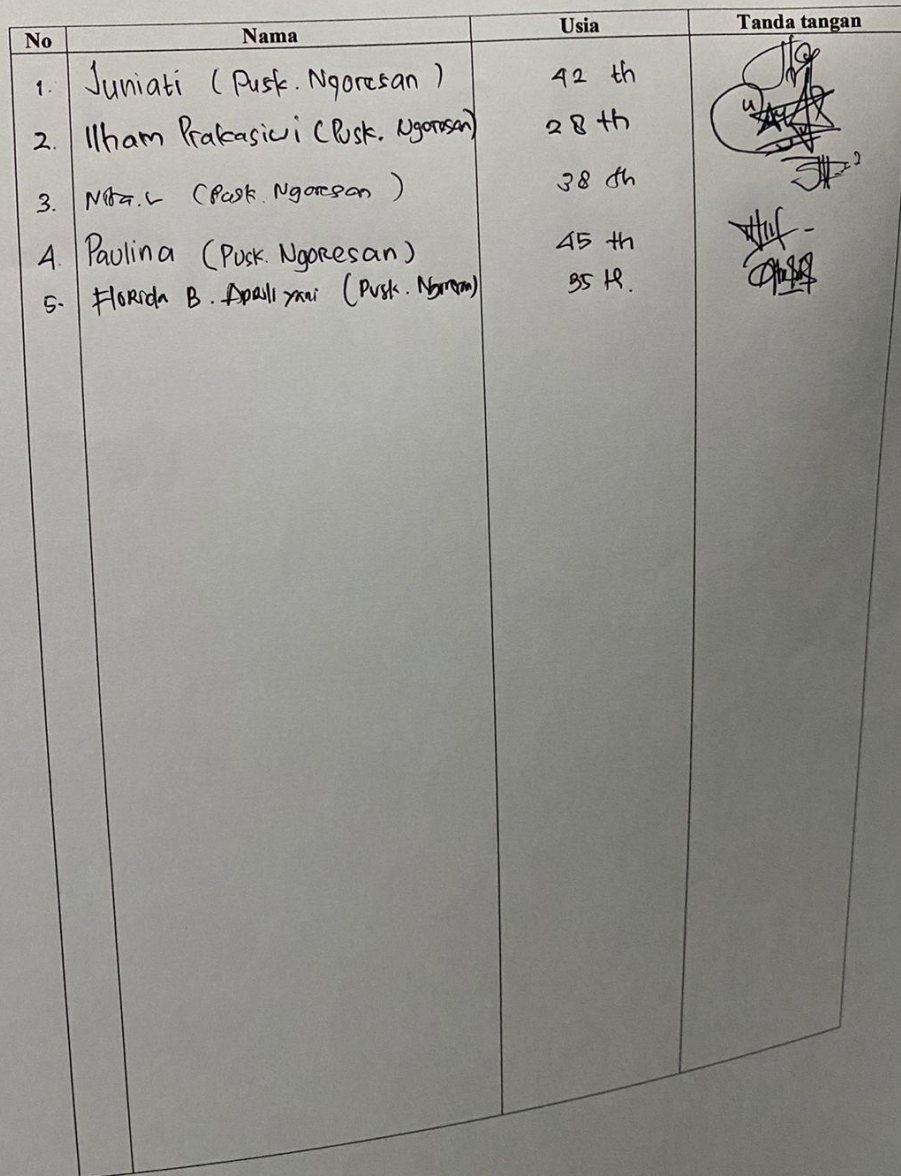 No Nama Usia Tanda tangan
1. Juniati (Pusk. Ngoresan) 42 th
2. Ilham Prakasiwi (Pusk. Ngoresan) 28 th
3. (Pusk. Ngoresan) 38 th
4. Paulina (Pusk. Ngoresan) 45 th
5. Florida B. (Pusk. 35 th.